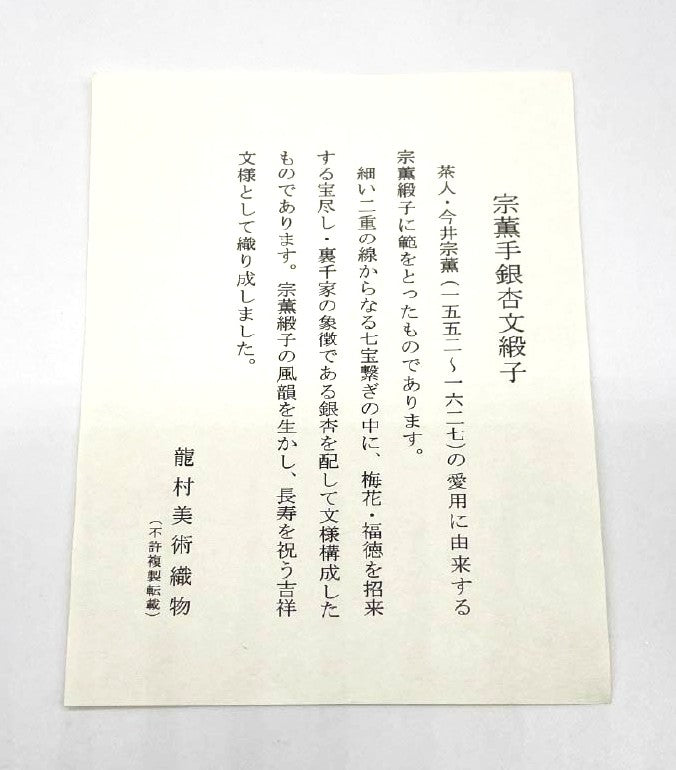 宗薫手銀杏文緞子
茶人・今井宗薫(一五五二～一六二七)の愛用に由来する
宗薫緞子に範をとったものであります。
細い二重の線からなる七宝繋ぎの中に、梅花・福徳を招来
する宝尽し・裏千家の象徴である銀杏を配して文様構成した
ものであります。宗薫緞子の風韻を生かし、長寿を祝う吉祥
文様として織り成しました。
龍村美術織物
(不許複製転載)